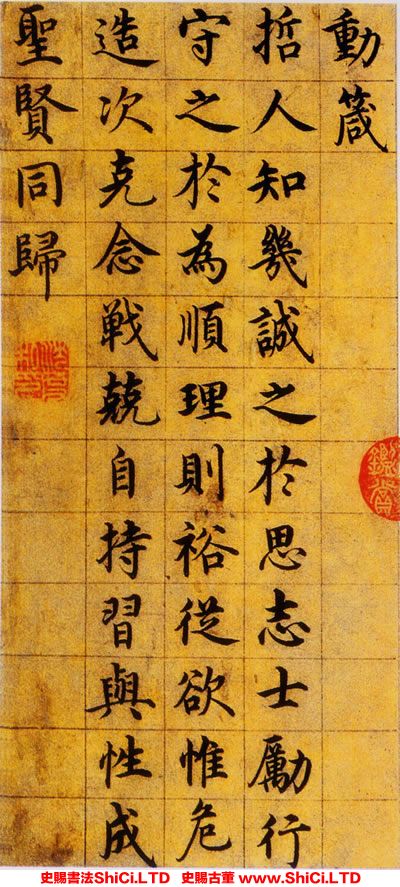 動箴
哲人知幾誠之於思志士勵行
守之於為順理則裕從欲惟危
造次克念戰兢自持習與性成
聖賢同歸
史賜書法ShiCi.LTD 史賜古董 www.ShiCi.LTD